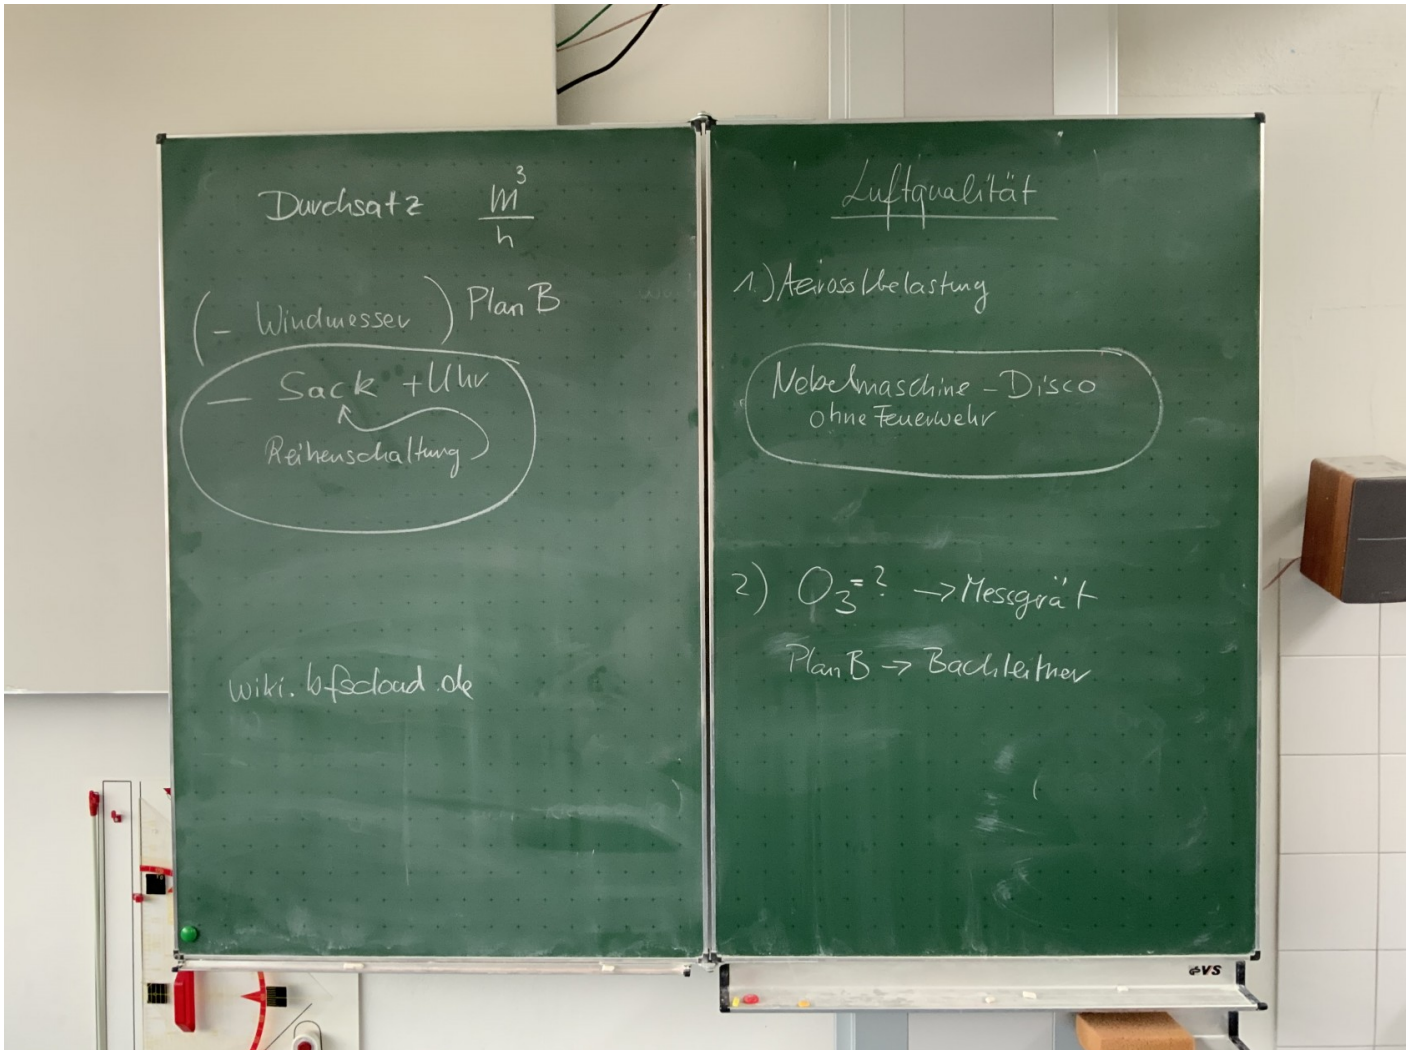 Durchsatz m³/h
(- Windmesser) Plan B
— Sack + Uhr
Reihenschaltung
wiki.bfscloud.de
Luftqualität
1.) Aerosolbelastung
Nebelmaschine - Disco
ohne Feuerwehr
2) O₃ = ? → Messgerät
Plan B → Bachleitner
VS